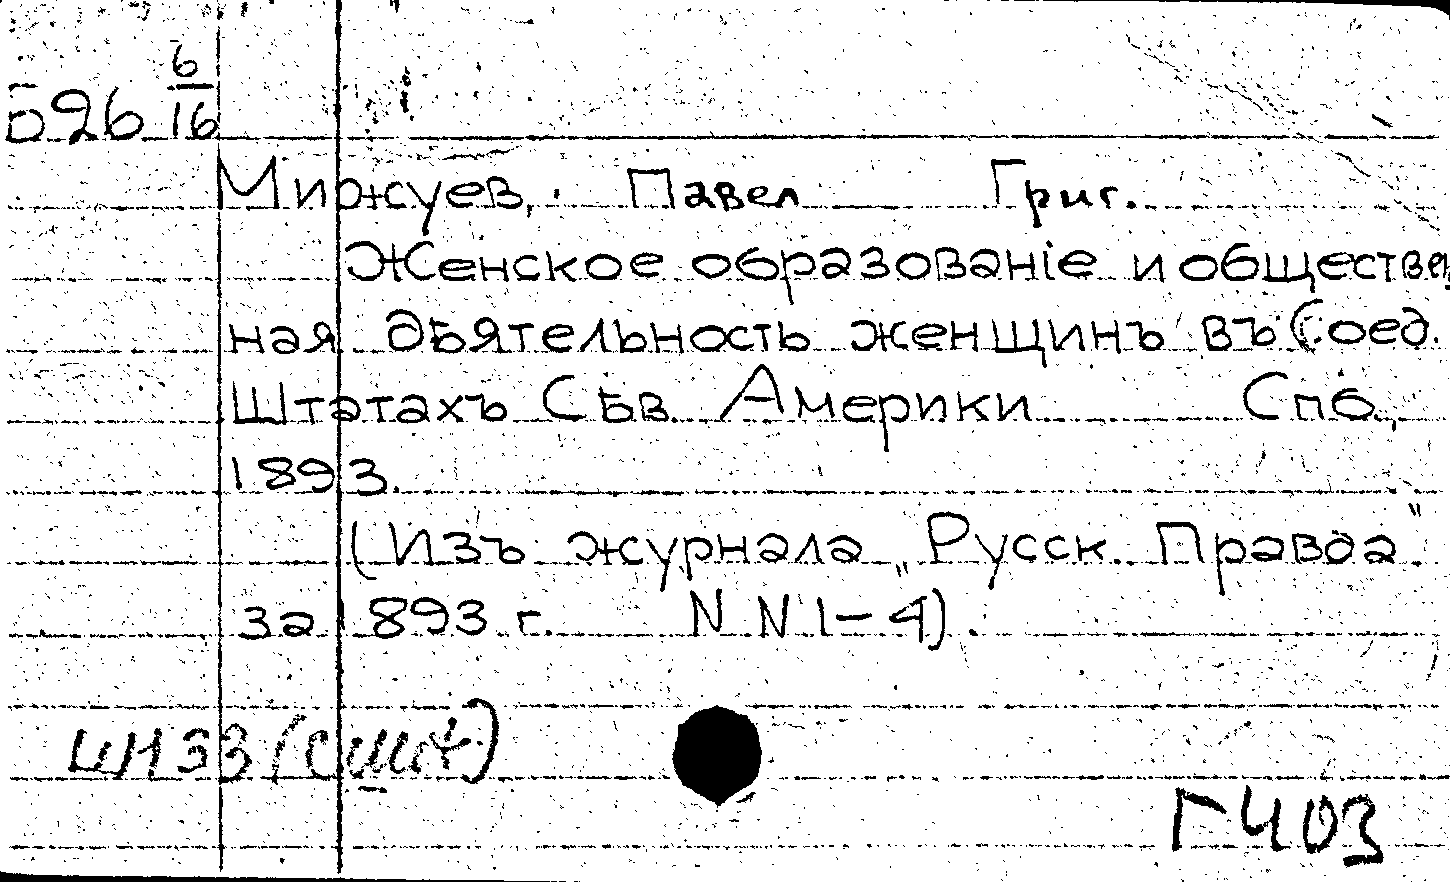 6
Б 26 16
Мижуев, Павел Григ.
Женское образованiе и обществен
ная дѣятельность женщинъ въ Соед.
Штатахъ Сѣв. Америки Спб.,
1893.
(Изъ журнала „Русск. Правда"
за 1893 г. N N 1-4).
Г403